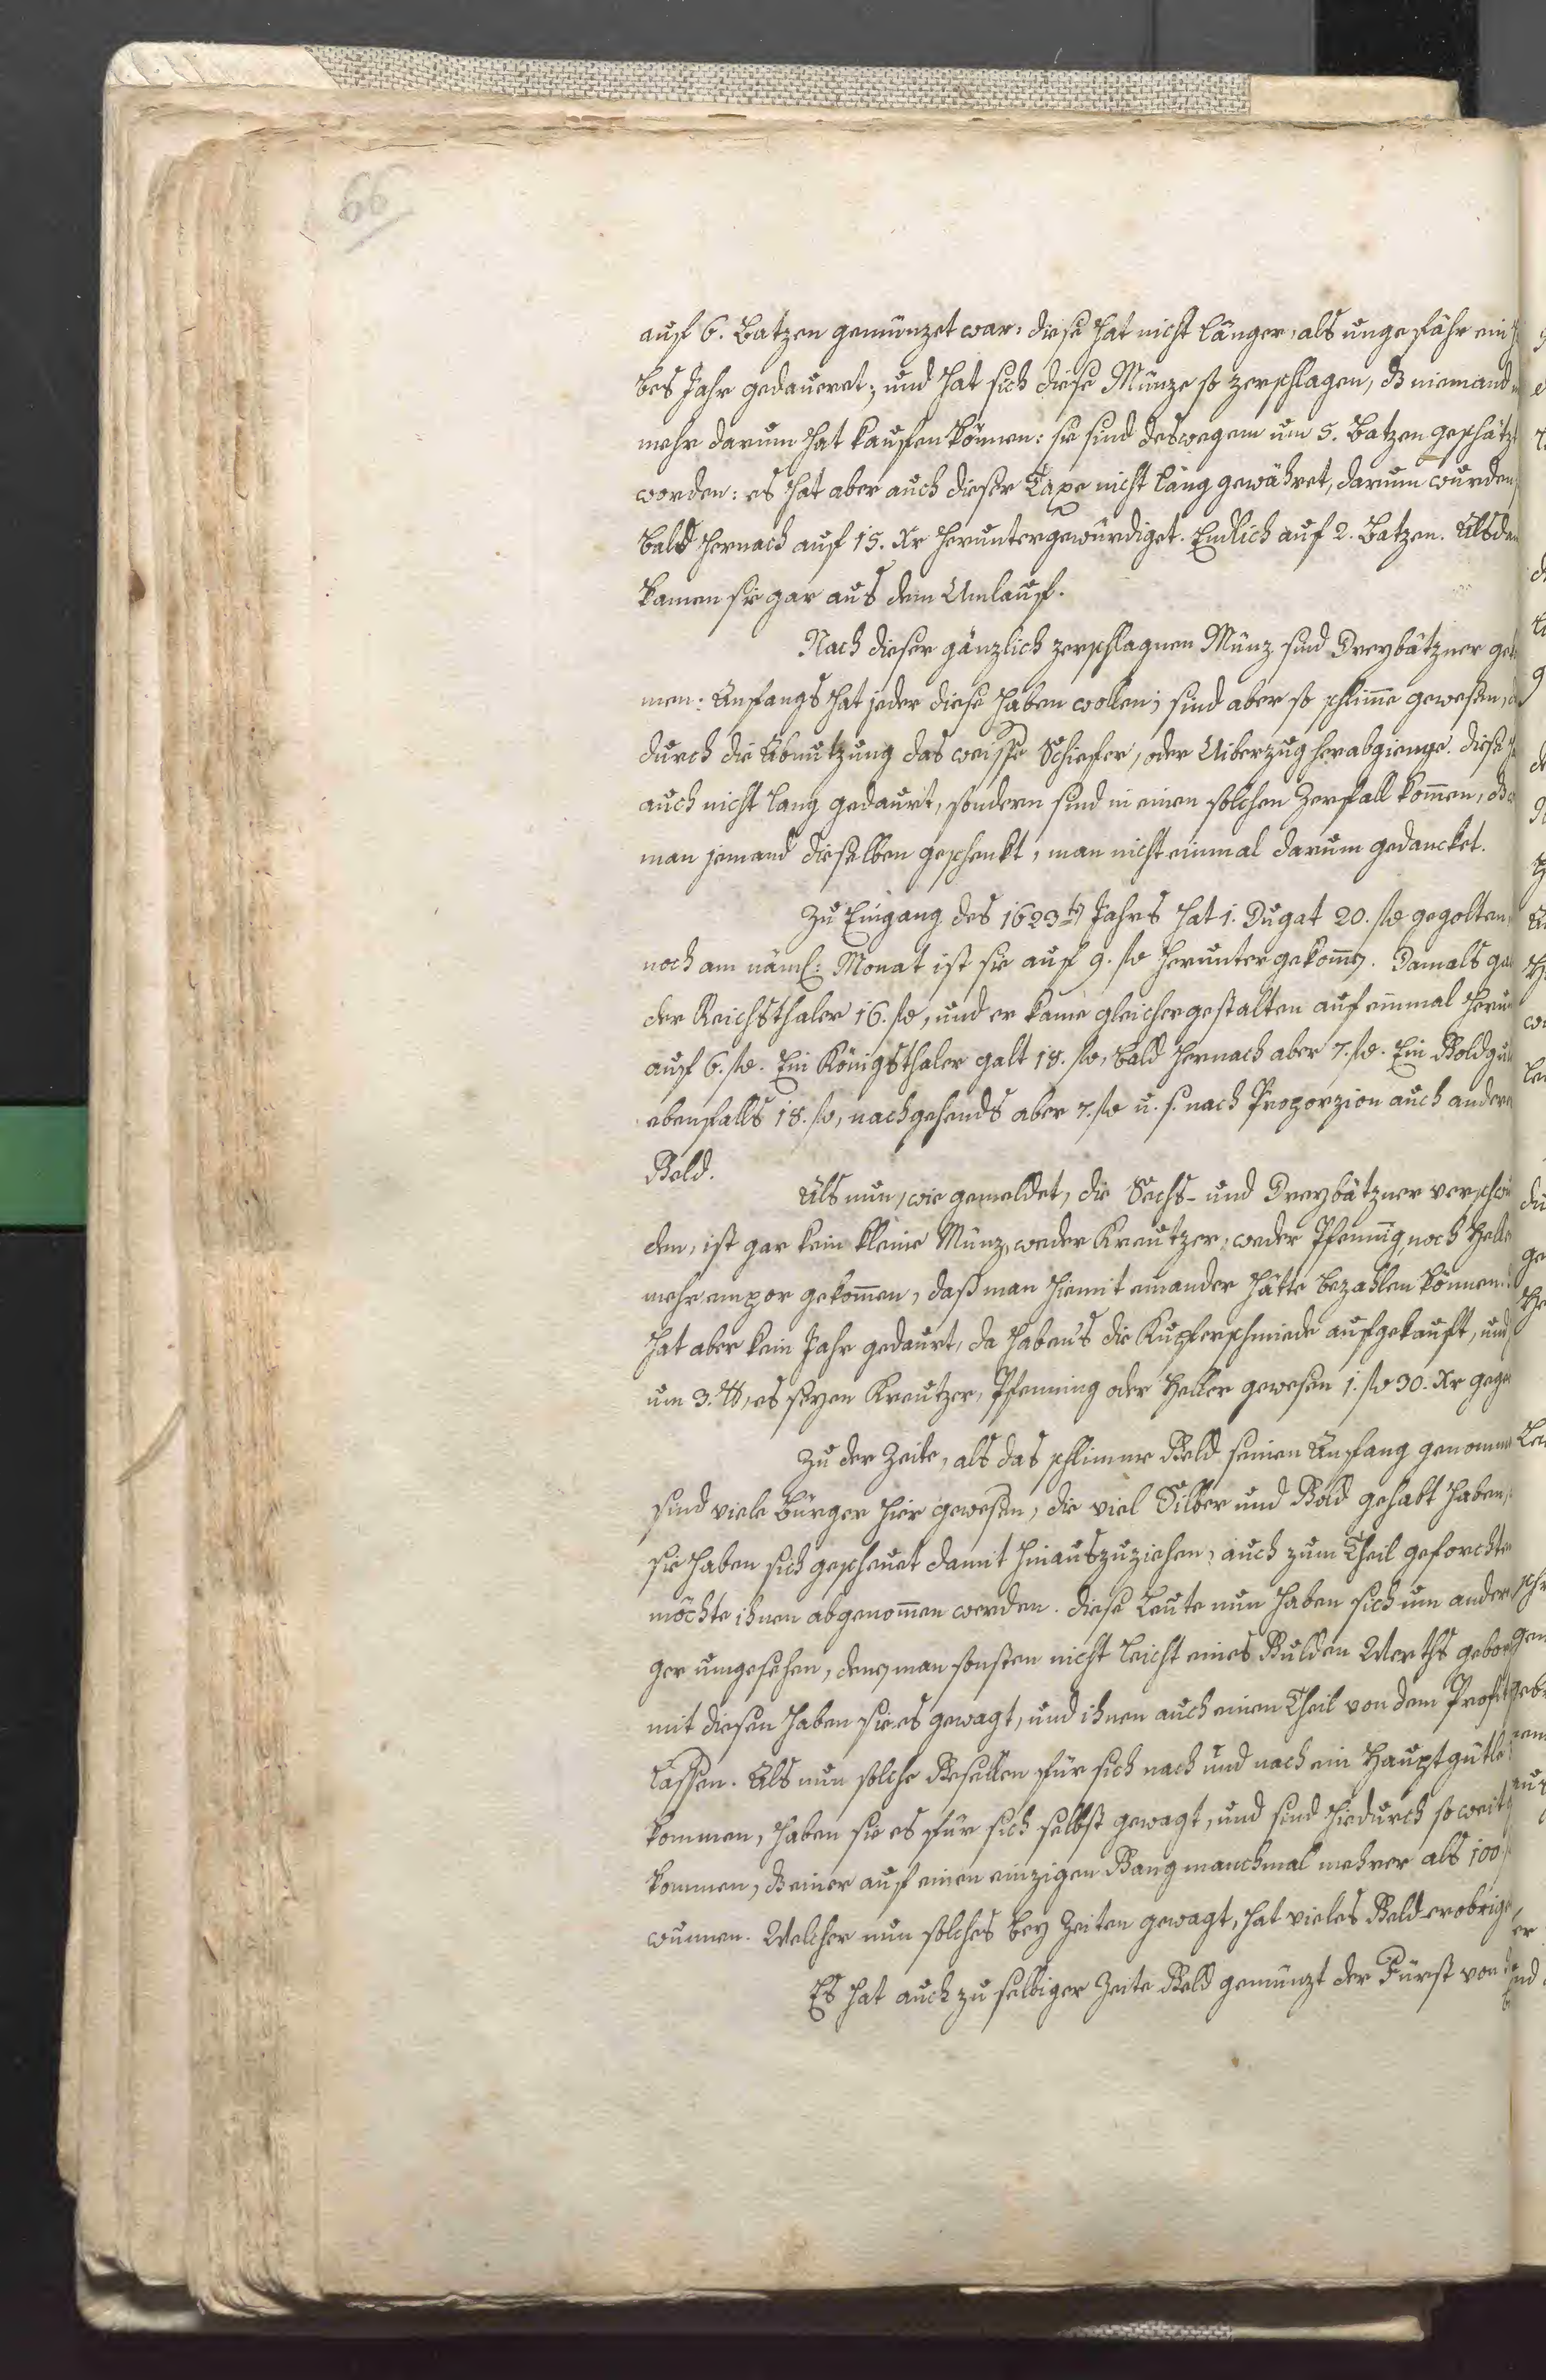 66
auf 6. Batzen gemünzet war: diese hat nicht länger, als ungefähr ein
bes Jahr gedaueret; und hat sich diese Münze so zerschlagen, dß niemand
mehr darum hat kaufen können: sie sind deswegem um 5. Batzen geschätzt
worden: es hat aber auch dieser Taxe nicht lang gewähret, darum wurden
bald hernach auf 15. Xr heruntergewürdiget. Endlich auf 2. Batzen. Alsdan
kamen sie gar aus dem Umlauf.
Nach dieser gänzlich zerschlagnen Münz sind Dreybätzner
men: Anfangs hat jeder diese haben wollen; sind aber so schlim̄e gewesen,
durch die Abnutzung das weisse Schiefer, oder Uiberzug herabgienge. diese
auch nicht lang gedaurt, sondern sind in einen solchen Zerfall kom̄en, dß
man jemand dieselben geschenkt, man nicht einmal darum gedancket.
Zu Eingang des 1623ten Jahrs hat 1. Dugat 20. fl. gegolten
noch am näml: Monat ist sie auf 9. fl. herunter gekom̄en. Damals
der Reichsthaler 16. fl., und er kame gleichergestalten auf einmal
auf 6. fl. Ein Königsthaler galt 18. fl., bald hernach aber 7. fl. Ein
ebenfalls 18. fl., nachgehends aber 7. fl. u. s. nach Proporzion auch andere
Geld.
Als nun, wie gemeldet, die Sechs- und Dreybätzner
den, ist gar kein kleine Münz, weder Kreutzer, weder Pfennig, noch Helle
mehr empor gekom̄en, daß man hiemit einander hätte bezahlen können.
hat aber kein Jahr gedaurt, da haben's die Kupferschmiede aufgekauft, und
um 3. ℔, es seyen Kreutzer, Pfenning oder Heller gewesen 1. fl. 30. Xr
Zu der Zeite, als das schlimme Geld seinen Anfang genomme
sind viele Bürger hier gewesen, die viel Silber und Gold gehabt haben,
sie haben sich gescheuet damit hinauszuziehen, auch zum Theil geforchte
möchte ihnen abgenom̄en werden. diese Leute nun haben sich um ander
ger umgesehen, denen man sonsten nicht leicht eines Gulden Werths
mit diesen haben sie es gewagt, und ihnen auch einen Theil von dem Profit
lassen. Als nun solche Gesellen für sich nach und nach ein Hauptgütle
kommen, haben sie es für sich selbst gewagt, und sind hiedurch so weit
kommen, dß einer auf einen einzigen Gang manchmal mehrer als 100
wunnen. Welcher nun solches bey Zeiten gewagt, hat vieles Geld
Es hat auch zu selbiger Zeite Geld gemünzt der Fürst von